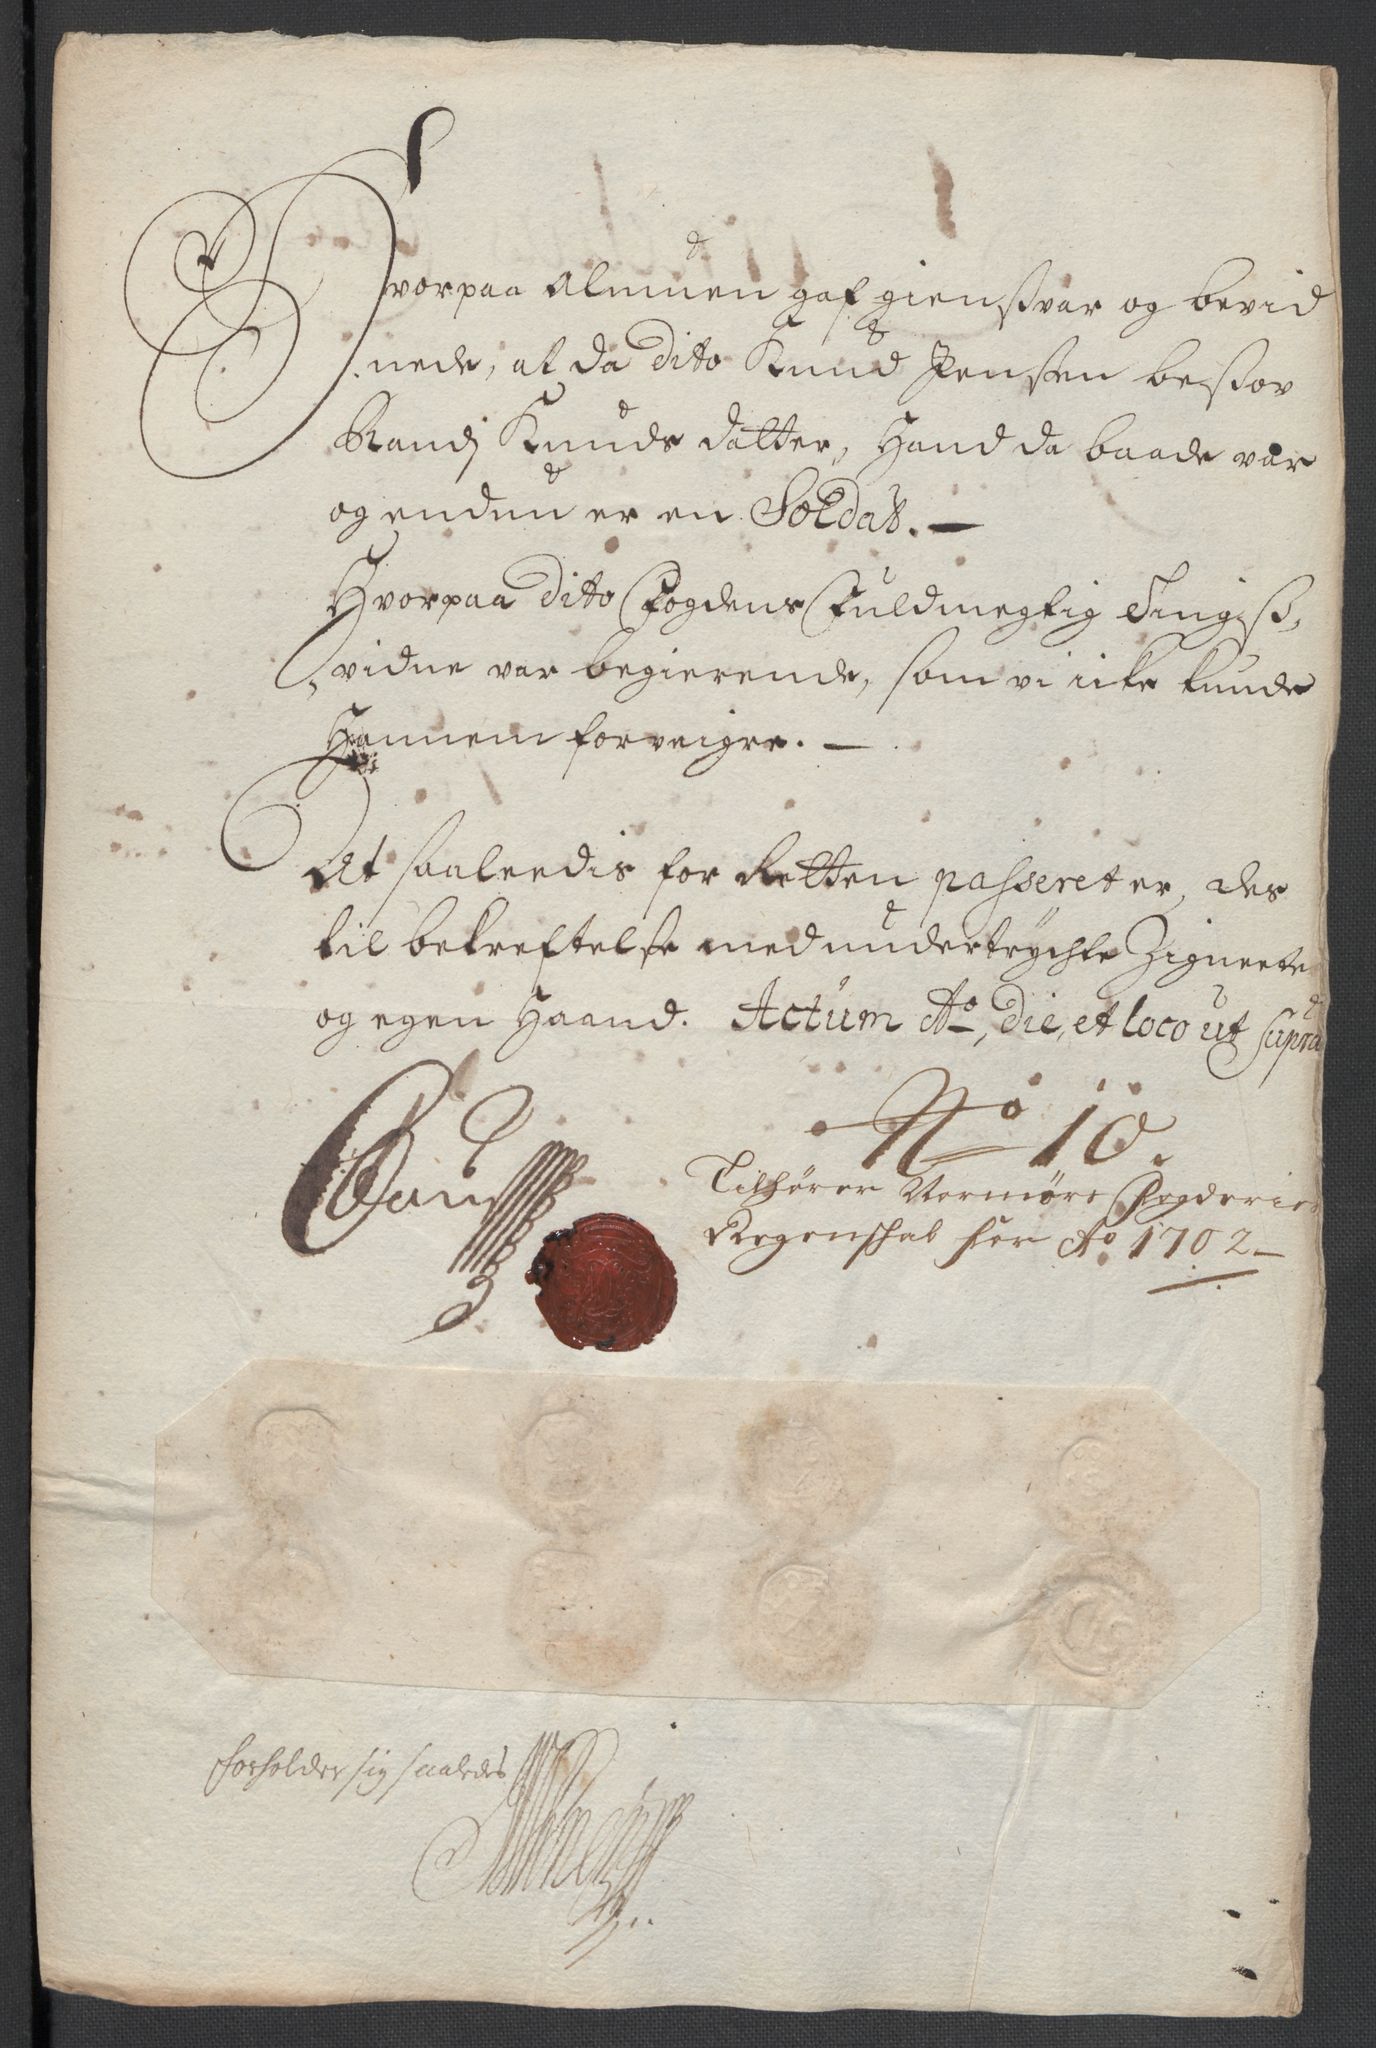 Hvorpaa Almuen gaf giensvar og bevid
nede, at da dito Knud Jenssen besov
Randj Knuds datter, Hand da baade var
og endnu er en Soldat.
Hvorpaa dito Fogdens Fuldmegtig Tingis,
vidne var begierende, som vi icke kunde
Hannem forveigre.
At saaleedis for Retten passeret er, des
til bekreftelse med undertrychte Zigneete
og egen Haand. Actum Ao, die, et loco ut supra
No 10.
Tilhører Normøre Fogderies
Regenschab for Ao 1702
forholder sig saaledes